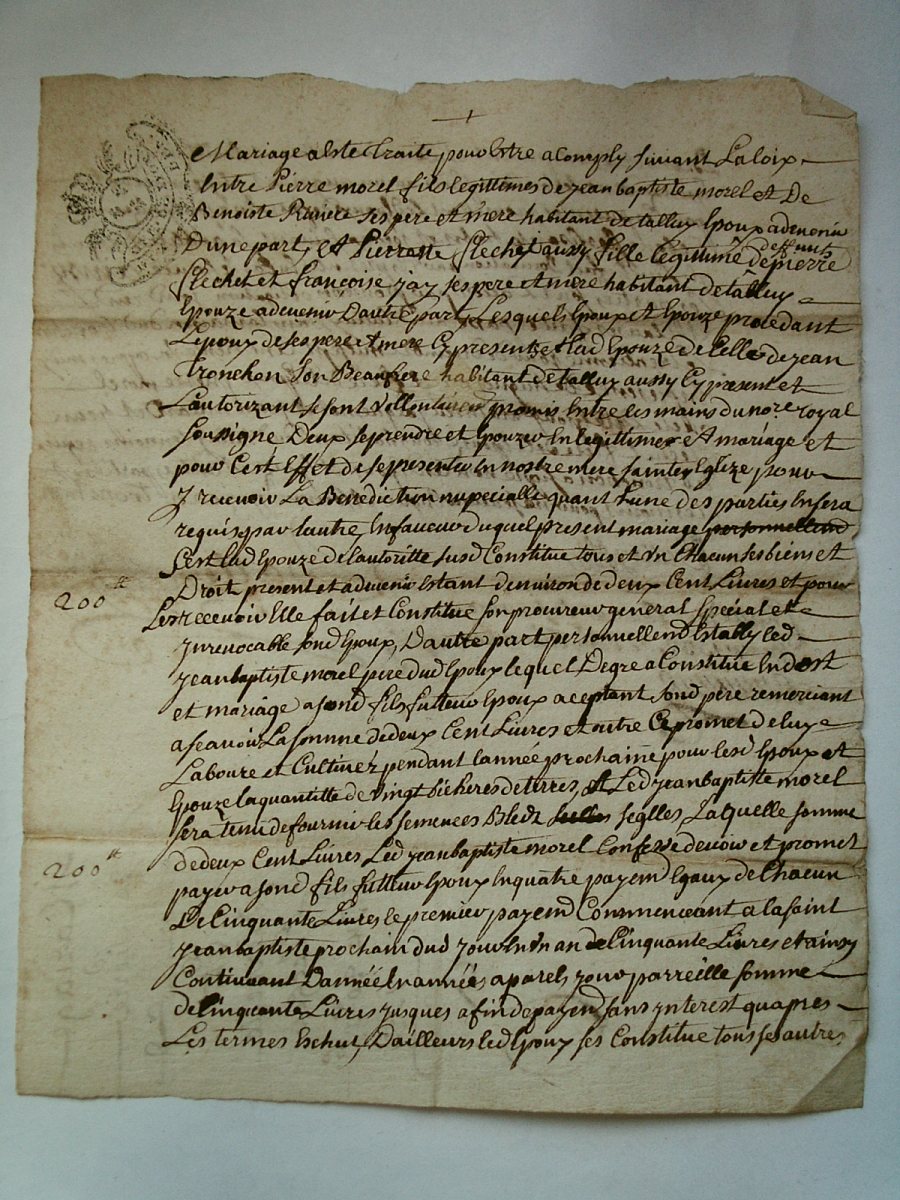 Mariage a Este traité pour Estre acomply suivant La loix
Entre Pierre morel fils legittimes de jean baptiste morel et De
Benoiste Riviere ses pere et mere habitant de talluy Epoux advenir
D'une part, et Pierrette flechet aussy fille legittime de pierre
deffunt
flechet et françoise jay ses pere et mere habitant de talluy
Epouze advenir D'autre part, Lesquels Epoux et Epouze procedant
L'epoux de ses pere et mere Cy presents et lad Epouze de Celle de jean
tronchon son Beaufrere habitant de talluy aussy Cy present et
L'autorizant se sont vollontairem promis Entre les mains du nore royal
soussigné D'eux se prendre et Epouzer En legittimes mariage et
pour C'est Effet de se presenter En nostre mere sainte Eglize pour
Y recevoir La Benediction nupcialle quant L'une des parties En sera
requise par l'autre, En faveur duquel present mariage personnellemt
s'est lad Epouze de l'autoritte susd Constitue tous et Un Chacun ses biens et
200tt
Droit present et advenir Estant d'environ de deux Cent Livres et pour
Les recevoir Elle fait et Constitue son procureur general special et
Yrrevocable sond Epoux, D'autre part personnellemt Estably led
jean baptiste morel pere dud Epoux lequel De gre a Constitue En dost
et mariage a sond fils futteur Epoux aceptant sond pere remerciant
a scavoir La somme de deux Cent Livres et outre Ce promet de luy
Laboure et Cultiver pendant l'année prochaine pour lesd Epoux et
Epouze la quantitte de vingt Bicherees de terres, et Led jean baptiste morel
sera tenu de fournir les semences Bleds seiglles, Laquelle somme
200tt
de deux Cent Livres Led jean baptiste morel Confesse devoir et promet
payer a sond fils futteur Epoux En quatre payemt Egaux de Chacun
De Cinquante Livres le premier payemt Commenceant a la saint
jean baptiste prochain dud jour En Un an de Cinquante Livres et ainsy
Continuant D'année En années a parels jour parreille somme
de Cinquante Livres jusques a fin de payemt sans ynterest qu'apres
Les termes Eschut, D'ailleurs led Epoux ses Constitue tous ses autres